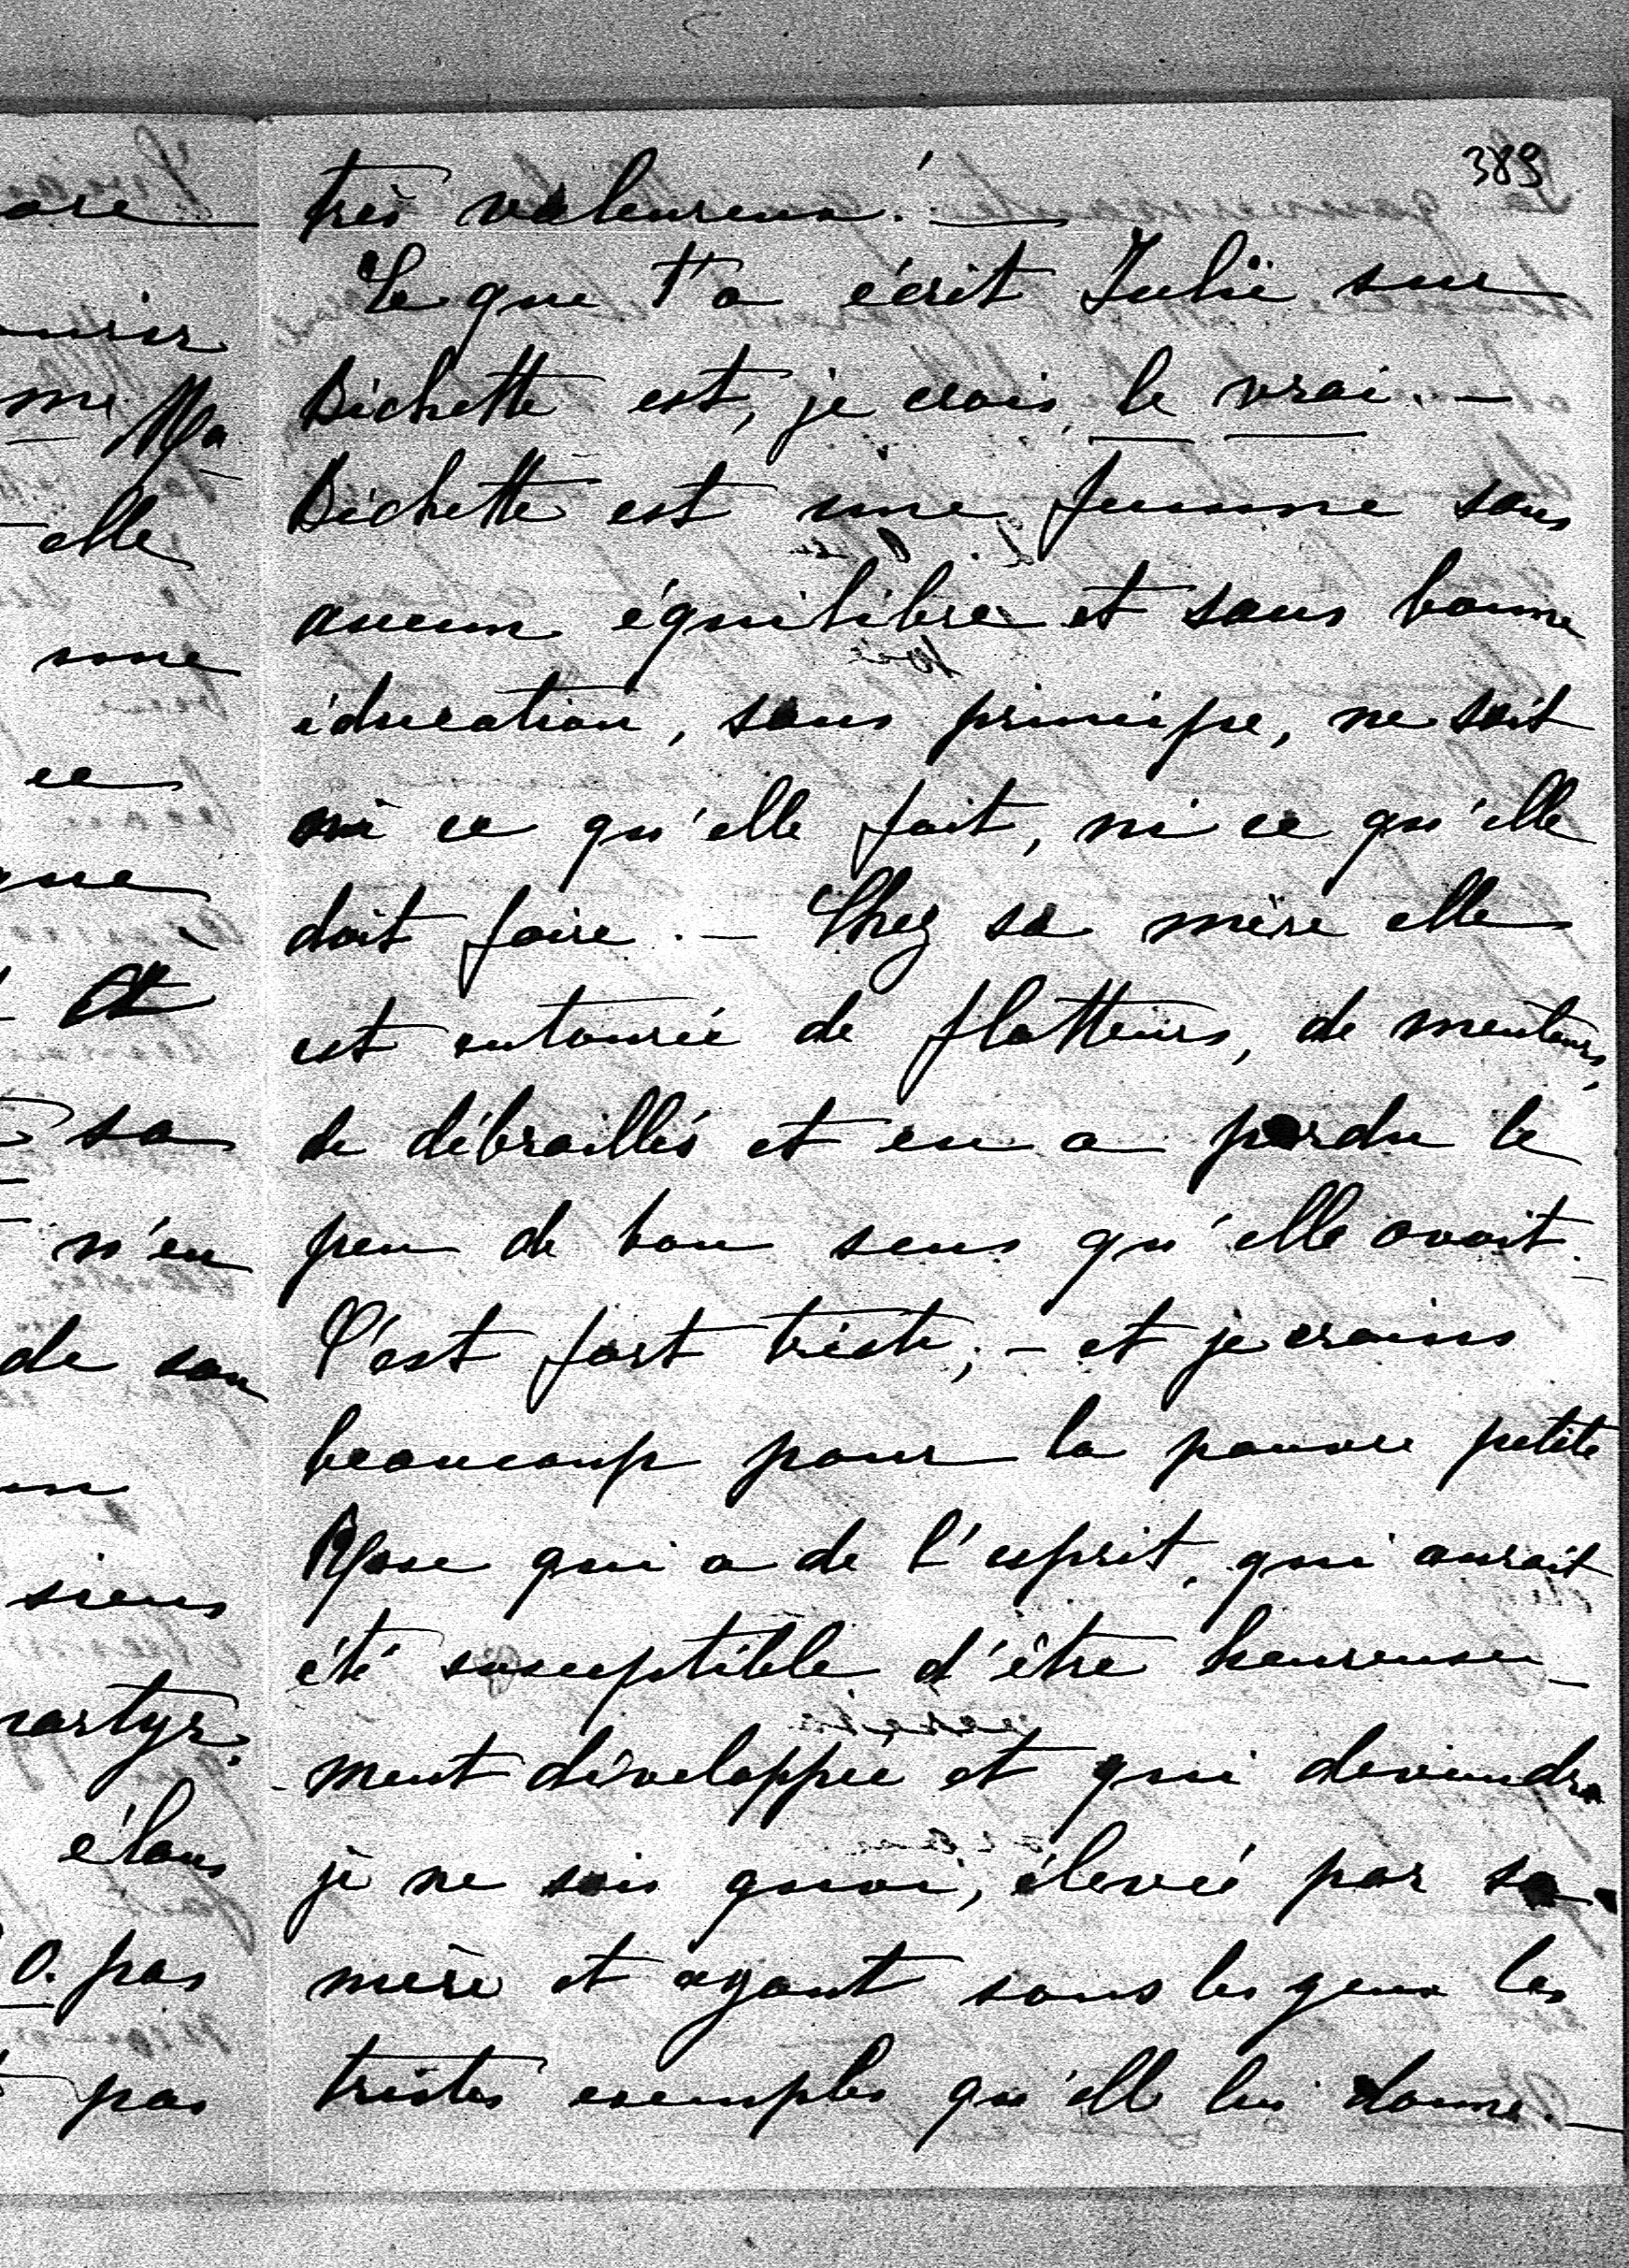 389
très valeureux. —
Ce que t'a écrit Julie sur
Bichette est, je crois, le vrai. —
Bichette est une femme sans
aucun équilibre et sans bonne
éducation, sans principe, ne sait
ni ce qu'elle fait, ni ce qu'elle
doit faire. — Chez sa mère elle
est entourée de flatteurs, de menteurs,
de débraillés et en a perdu le
peu de bon sens qu'elle avait.
C'est fort triste; — et je crains
beaucoup pour la pauvre petite
qui a de l'esprit, qui aurait
été susceptible d'être heureuse-
-ment développée et qui deviendra
je ne sais quoi, élevée par sa
mère et ayant sous les yeux les
tristes exemples qu'elle lui donne. —
Ma
elle
ce
Et
sa
n'en
de son
élans
pas
pas